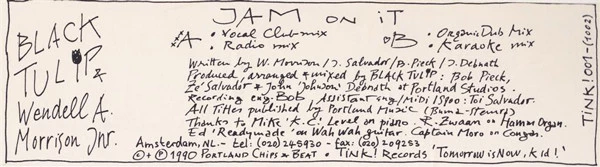 BLACK
TULIP
&
Wendell A.
Morrison Jnr.
JAM ON iT
A • Vocal Clubmix
• Radio mix
B • OrganicDub Mix
• Karaoke mix
Written by W. Morrison / J. Salvador / B. Pieck / J. Debnath
Produced, arranged & mixed by BLACK TULIP: Bob Pieck,
Zé Salvador & John 'Johnson' Debnath at Portland Studios.
Recording eng. Bob / Assistant eng / Midi / S900: Toi Salvador.
All Titles published by Portland Music (Buma-stemra)
Thanks to Mike 'K.C.' Level on piano. R. Zwaan on Hammond Organ.
Ed 'Readymade' on Wah Wah guitar. Captain Moro on Congas.
Amsterdam, NL - tel: (020) 245930 - fax: (020) 209253
© + ℗ 1990 PORTLAND CHIPS & BEAT • TiNK! Records 'Tomorrow is Now, kid!'
TiNK! 001 - (1002)